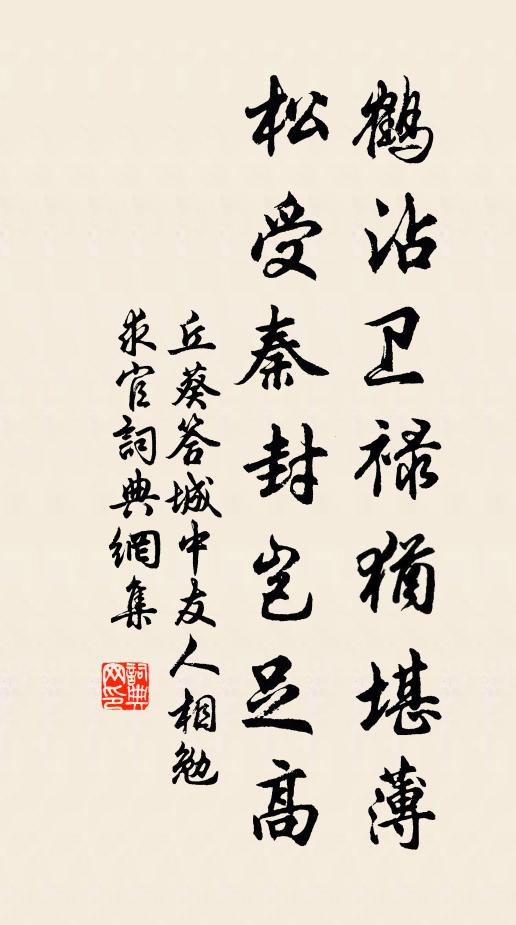 鹤沾卫禄犹堪薄
松受秦封岂足高
丘葵答城中友人相勉
求官詞典網集
詞典
网印